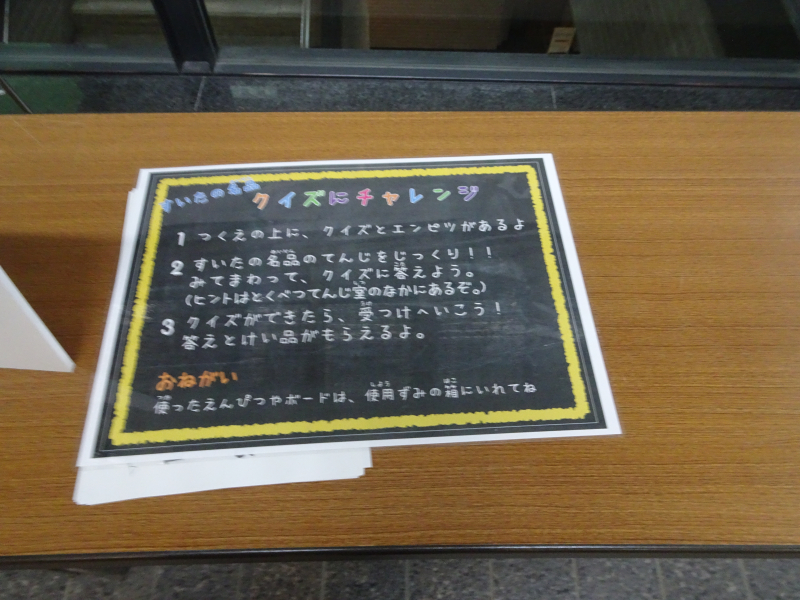 すいたの名品 クイズにチャレンジ
1 つくえの上に、クイズとエンピツがあるよ
2 すいたの名品のてんじをじっくり！！
みてまわって、クイズに答えよう。
(ヒントはとくべつてんじ室のなかにあるぞ。)
3 クイズができたら、受つけへいこう！
答えとけい品がもらえるよ。
おねがい
使ったえんぴつやボードは、使用ずみの箱にいれてね